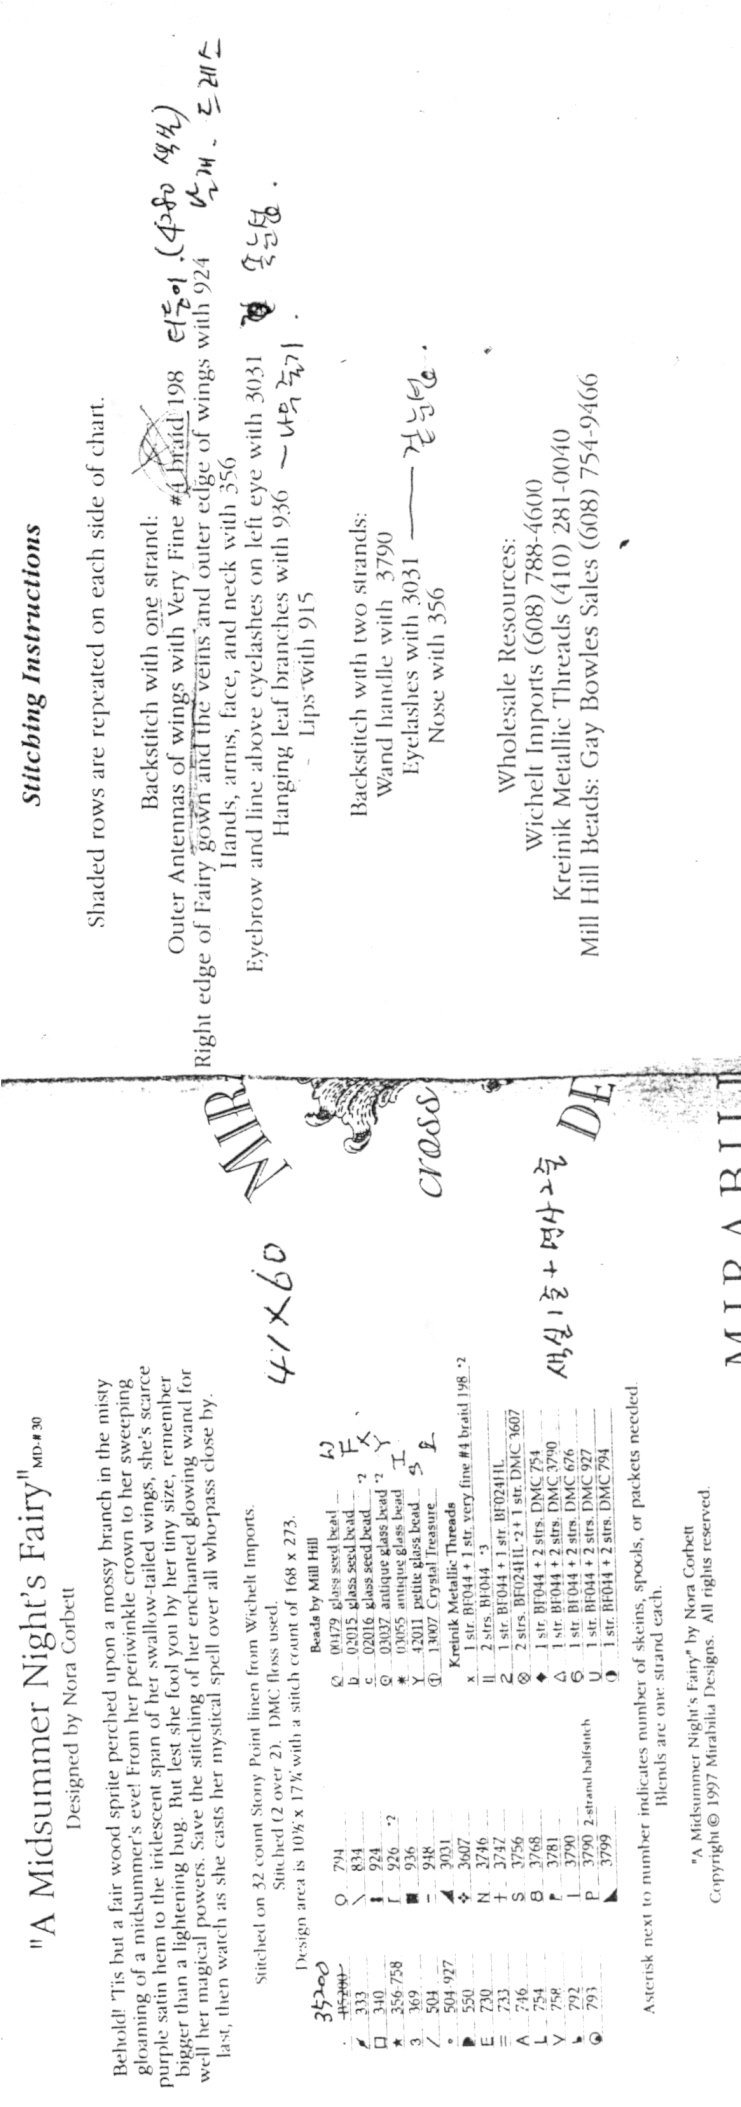 "A Midsummer Night's Fairy" MD-# 30
Designed by Nora Corbett
Behold! 'Tis but a fair wood sprite perched upon a mossy branch in the misty
gloaming of a midsummer's eve! From her periwinkle crown to her sweeping
purple satin hem to the iridescent span of her swallow-tailed wings, she's scarce
bigger than a lightening bug. But lest she fool you by her tiny size, remember
well her magical powers. Save the stitching of her enchanted glowing wand for
last, then watch as she casts her mystical spell over all who pass close by.
Stitched on 32 count Stony Point linen from Wichelt Imports.
Stitched (2 over 2). DMC floss used.
Design area is 10½ x 17¼ with a stitch count of 168 x 273.
41 x 60
35200
B5200
333
340
356-758
369
504
504-927
550
730
733
746
754
758
792
793
794
834
924
926 *2
936
948
3031
3607
3746
3747
3756
3768
3781
3790
3790 2-strand halfstitch
3799
Beads by Mill Hill
00479 glass seed bead
02015 glass seed bead
02016 glass seed bead *2
03037 antique glass bead *2
03055 antique glass bead
42011 petite glass bead
13007 Crystal Treasure
Kreinik Metallic Threads
x 1 str. BF044 + 1 str. very fine #4 braid 198 *2
2 strs. BF044 *3
1 str. BF044 + 1 str. BF024HL
2 strs. BF024HL *2 + 1 str. DMC 3607
1 str. BF044 + 2 strs. DMC 754
1 str. BF044 + 2 strs. DMC 3790
1 str. BF044 + 2 strs. DMC 676
1 str. BF044 + 2 strs. DMC 927
1 str. BF044 + 2 strs. DMC 794
색실 1줄 + 명사 2줄
Asterisk next to number indicates number of skeins, spools, or packets needed.
Blends are one strand each.
"A Midsummer Night's Fairy" by Nora Corbett
Copyright © 1997 Mirabilia Designs. All rights reserved.
MIRA
cross
DE
MIRABILI
Stitching Instructions
Shaded rows are repeated on each side of chart.
Backstitch with one strand:
Outer Antennas of wings with Very Fine #4 braid 198 더듬이
Right edge of Fairy gown and the veins and outer edge of wings with 924 날개 드레스
Hands, arms, face, and neck with 356
Eyebrow and line above eyelashes on left eye with 3031
Hanging leaf branches with 936 나무줄기.
Lips with 915
Backstitch with two strands:
Wand handle with 3790
Eyelashes with 3031 겉눈썹.
Nose with 356
Wholesale Resources:
Wichelt Imports (608) 788-4600
Kreinik Metallic Threads (410) 281-0040
Mill Hill Beads: Gay Bowles Sales (608) 754-9466